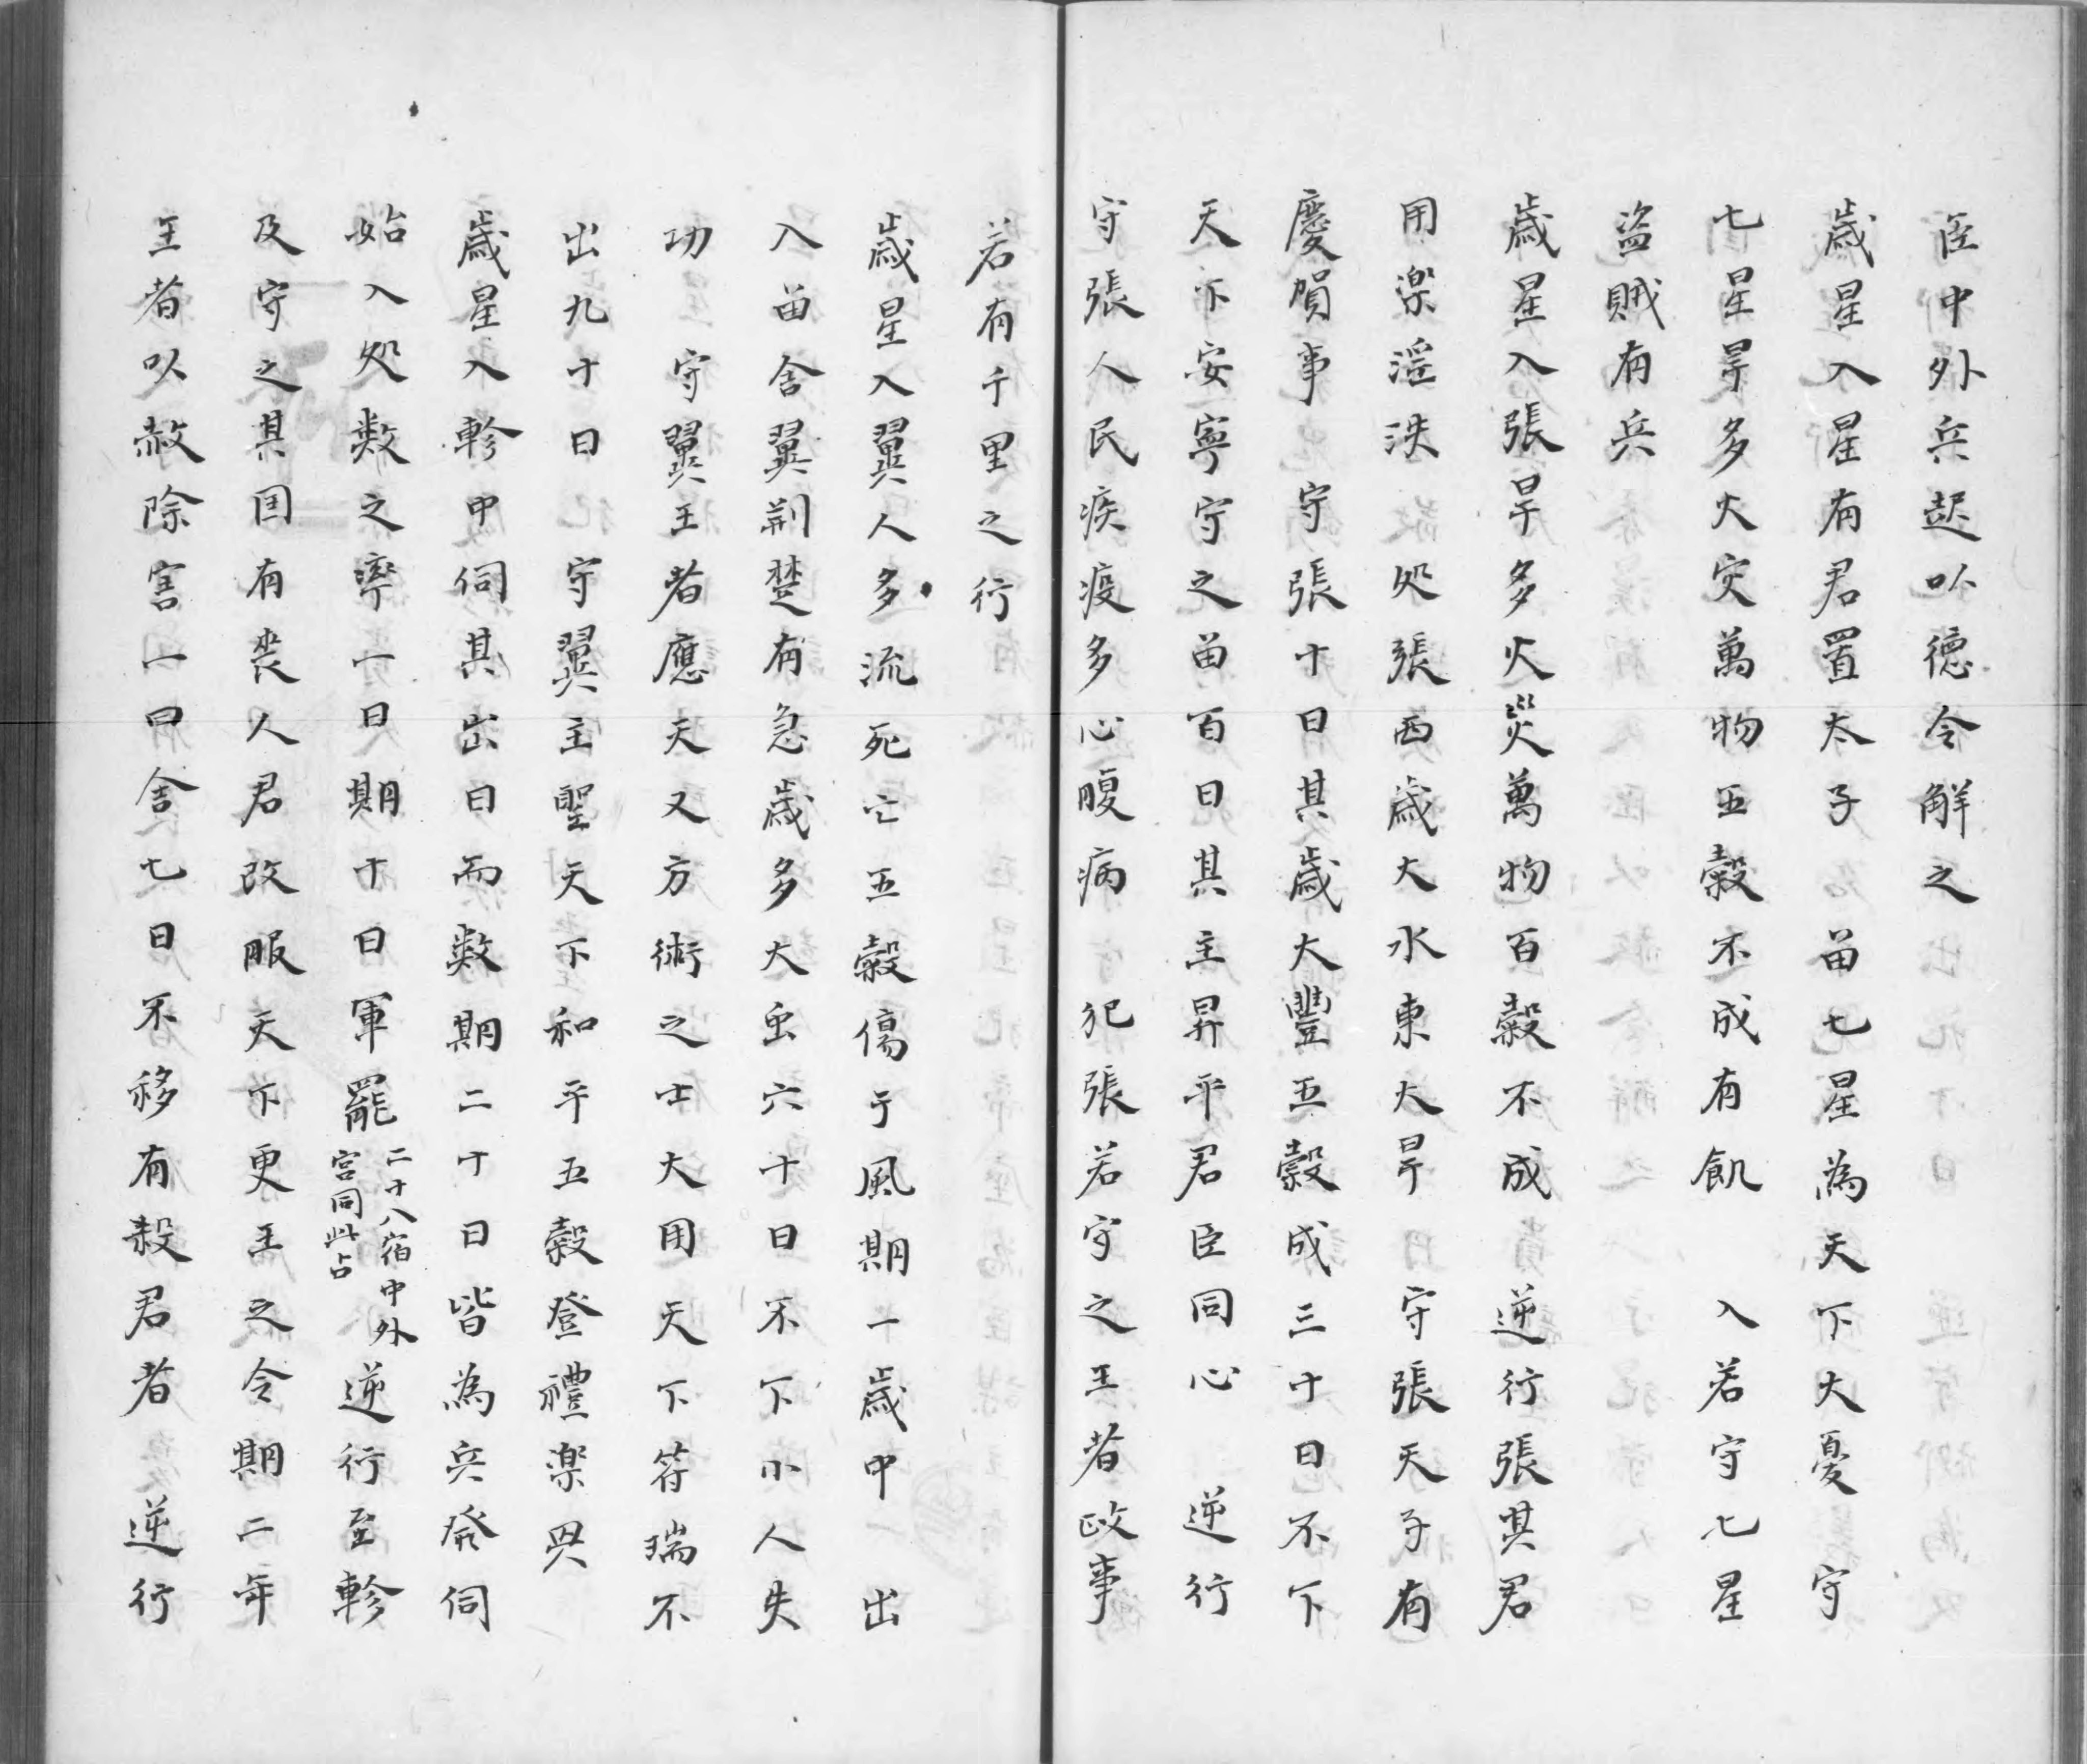 臣中外兵起以徳令解之
歳星入星有君置太子　畄七星為天下大憂　守
七星旱多火灾萬物五穀不成有飢　入若守七星
盗賊有兵
歳星入張旱多火災萬物百穀不成　逆行張其君
用楽淫泆　処張西歳大水東大旱　守張天子有
慶賀事　守張十日其歳大豐五穀成三十日不下
天下安寧守之畄百日其主昇平君臣同心　逆行
守張人民疾疫多心腹病　犯張若守之王者政事
若有千里之行
歳星入翼人多流死亡五穀傷于風期一歳中　出
入畄舎翼荊楚有急歳多大虫六十日不下小人失
功　守翼王者應天又方術之士大用天下符瑞不
出九十日　守翼主聖天下和平五穀登禮楽興
歳星入軫中伺其出日而数期二十日皆為兵発伺
始入処数之率一日期十日軍罷二十八宿中外宮同此占　逆行至軫
及守之其囯有喪人君改服天下更王之令期二年
王者以赦除害一曰舎七日不移有殺君者　逆行